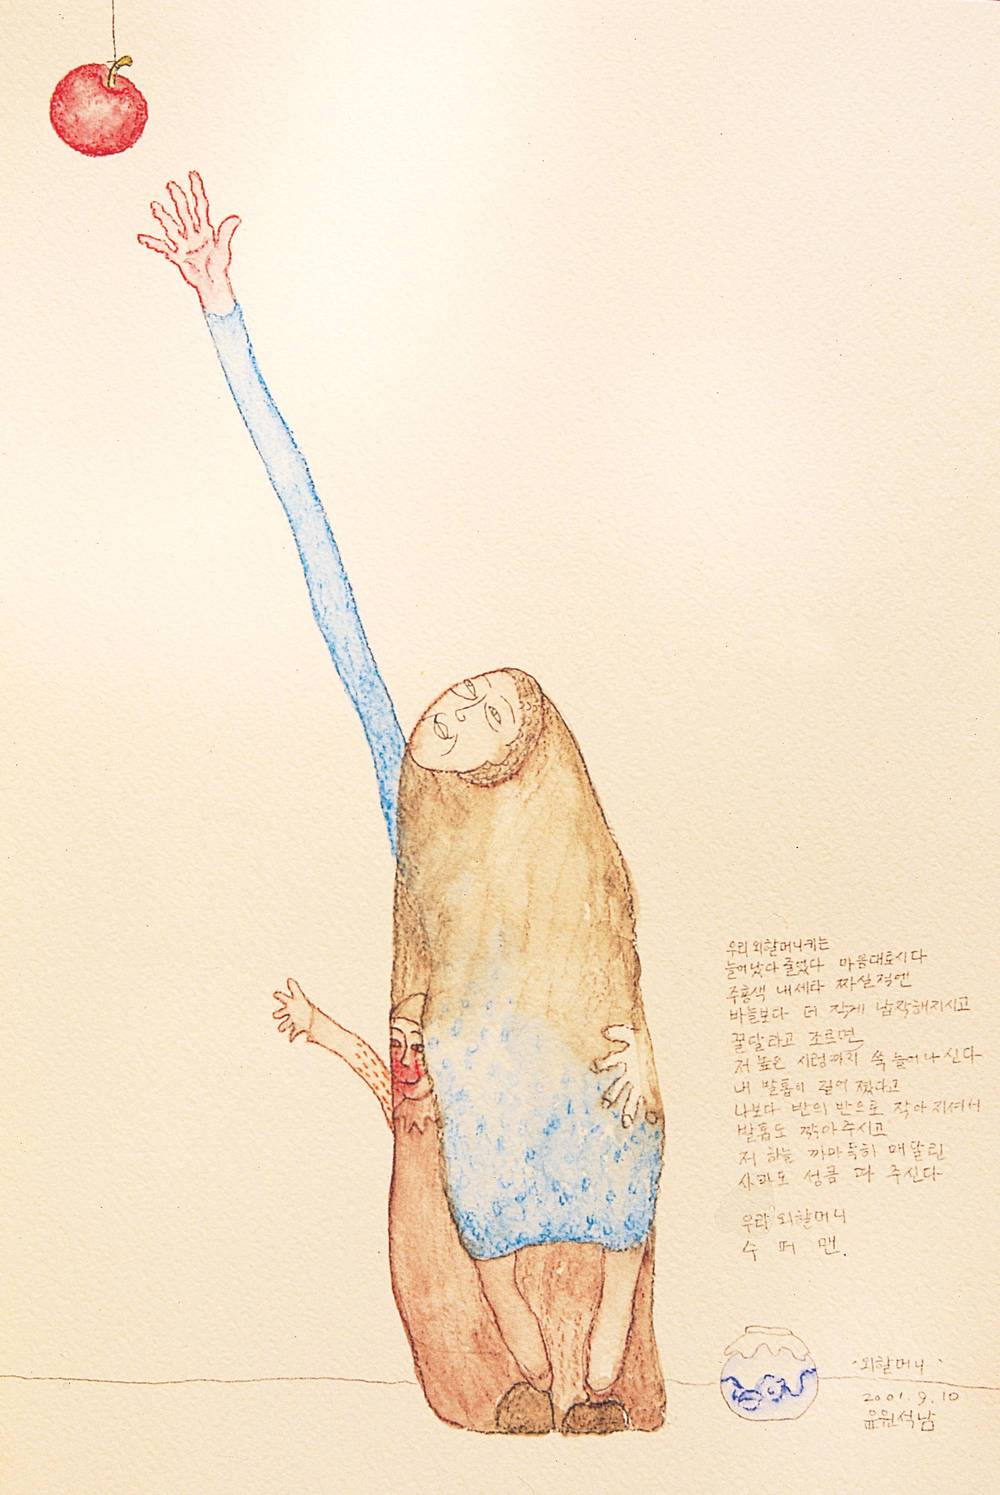 우리 외할머니 키는
늘어났다 줄었다 마음대로시다
주홍색 내세타 짜실적엔
바늘보다 더 작게 납작해지시고
꿀달라고 조르면
저 높은 시렁까지 쑥 늘어나신다
내 발톱이 길어 졌다고
나보다 반의 반으로 작아지셔서
발톱도 깎아주시고
저 하늘 까마득히 매달린
사과도 성큼 따 주신다
우리 외할머니
수 퍼 맨.
·외할머니·
2001. 9. 10
윤석남